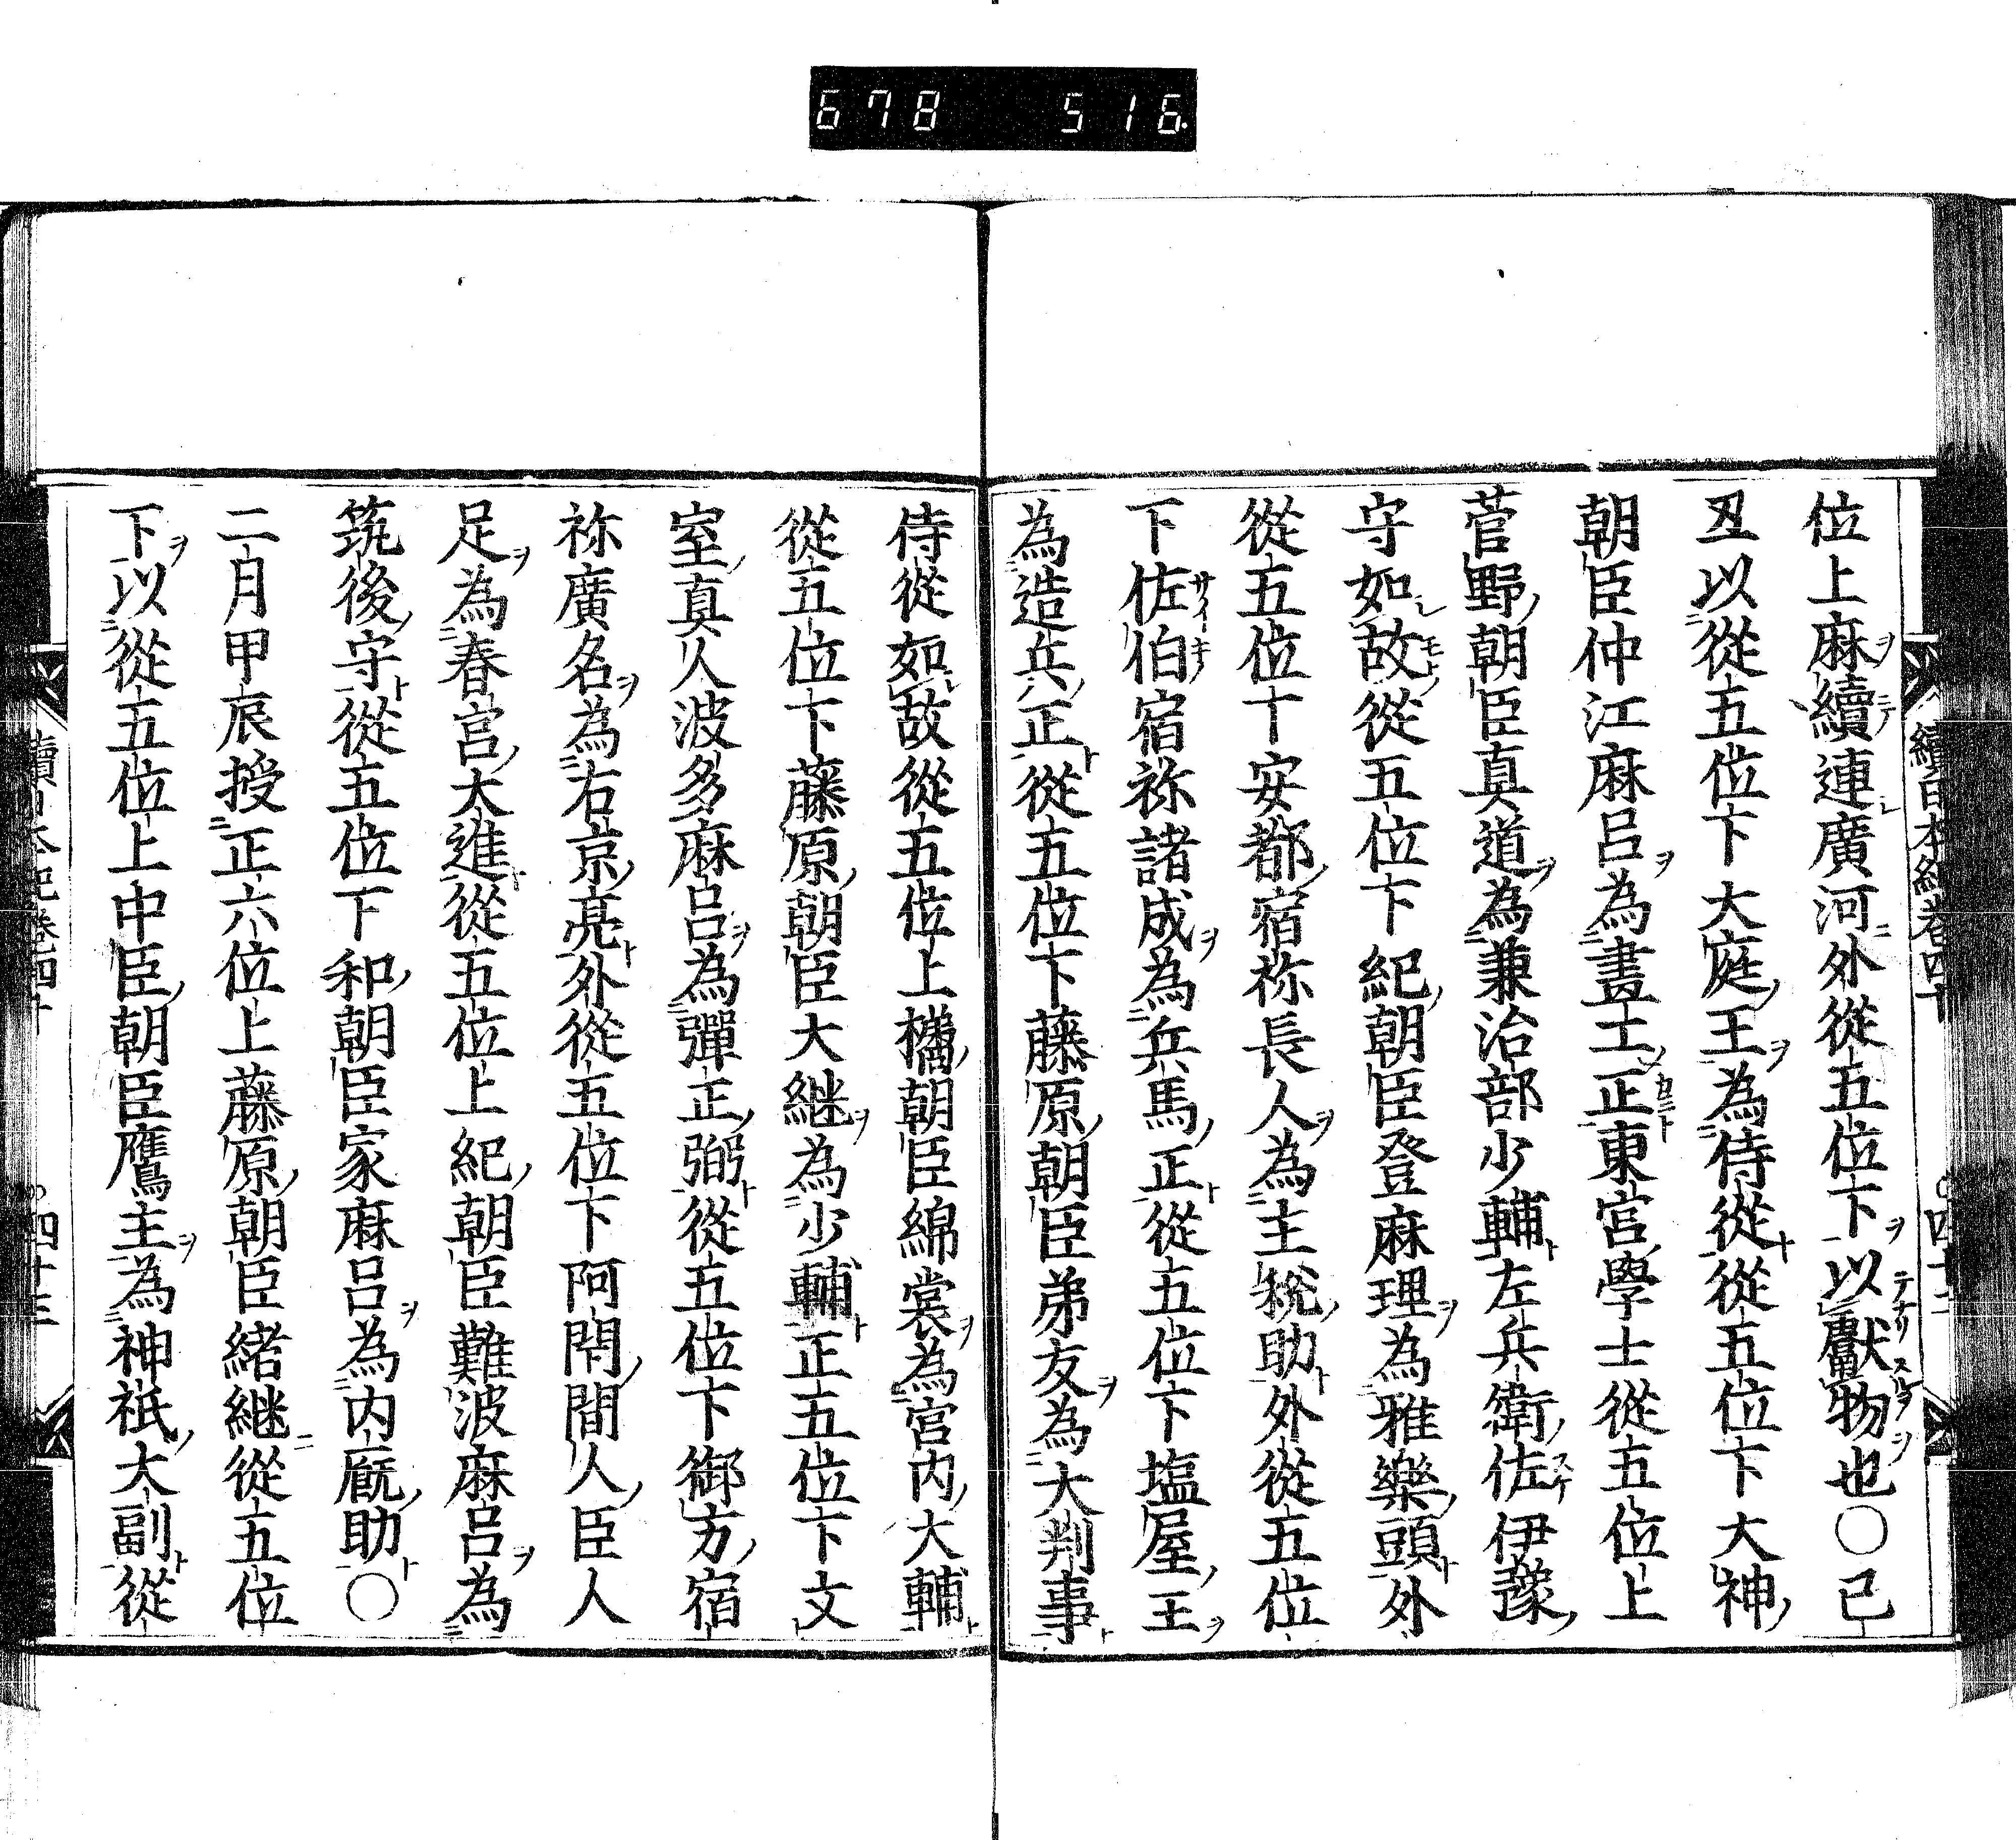 678 516
位上麻續連廣河外從五位下以獻物也○己
丑以從五位下大庭王為侍從從五位下大神
朝臣仲江麻呂為畫工正東宮學士從五位上
菅野朝臣真道為兼治部少輔左兵衛佐伊豫
守如故從五位下紀朝臣登麻理為雅樂頭外
從五位下安都宿祢長人為主稅助外從五位
下佐伯宿祢諸成為兵馬正從五位下塩屋王
為造兵正從五位下藤原朝臣弟友為大判事
侍從如故從五位上櫵朝臣綿裳為宮内大輔
從五位下藤原朝臣大継為少輔正五位下文
室真人波多麻呂為彈正弼從五位下御方宿
祢廣名為右京亮外從五位下阿閇間人臣人
足為春宮大進從五位上紀朝臣難波麻呂為
筑後守從五位下和朝臣家麻呂為内厩助○
二月甲辰授正六位上藤原朝臣緒継從五位
下以從五位上中臣朝臣鷹主為神祇大副從